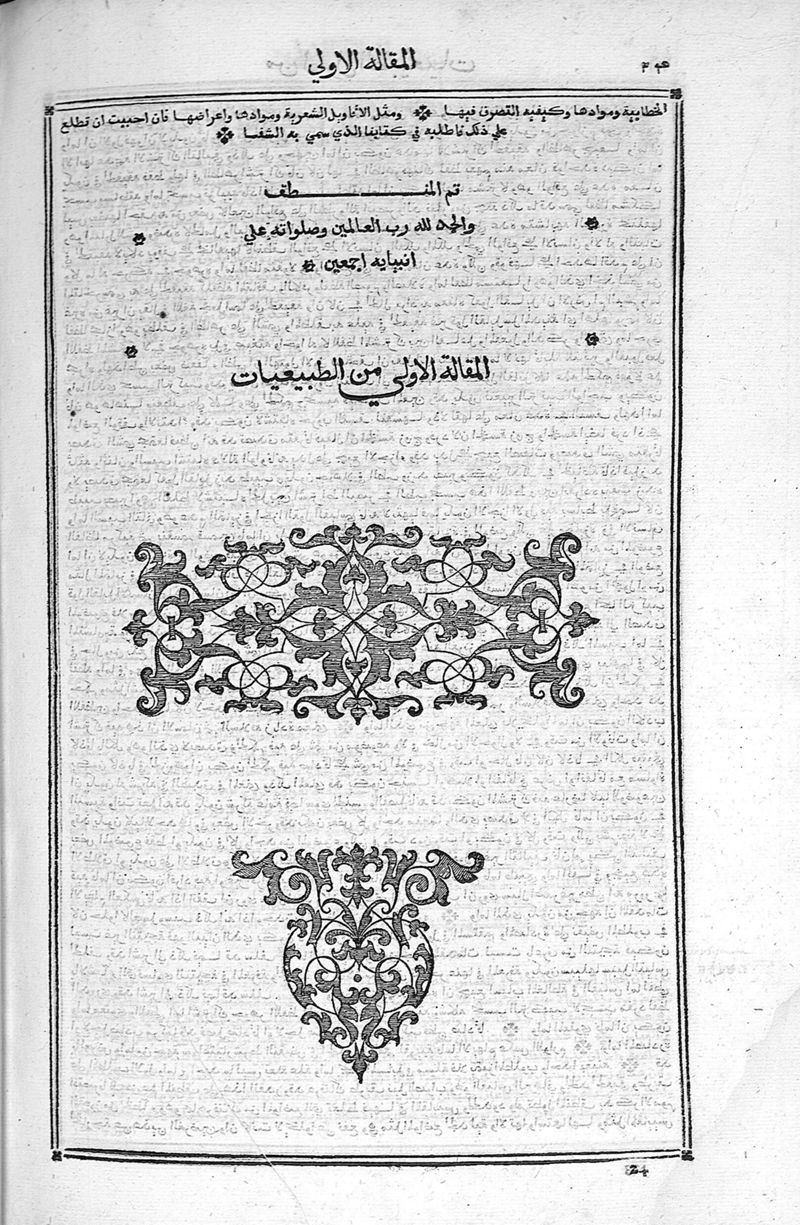 المقالة الاولي
الخطابية وموادها وكيفيه التصرف فيها ومثل الاقاويل الشعرية وموادها واعراضها فان احببت ان تطلع
علي ذلك فاطلبه في كتابنا الذي سمي به الشفا
تم المنطف
والحمد لله رب العالمين وصلواته علي
انبيايه اجمعين
المقالة الاولي من الطبيعيات